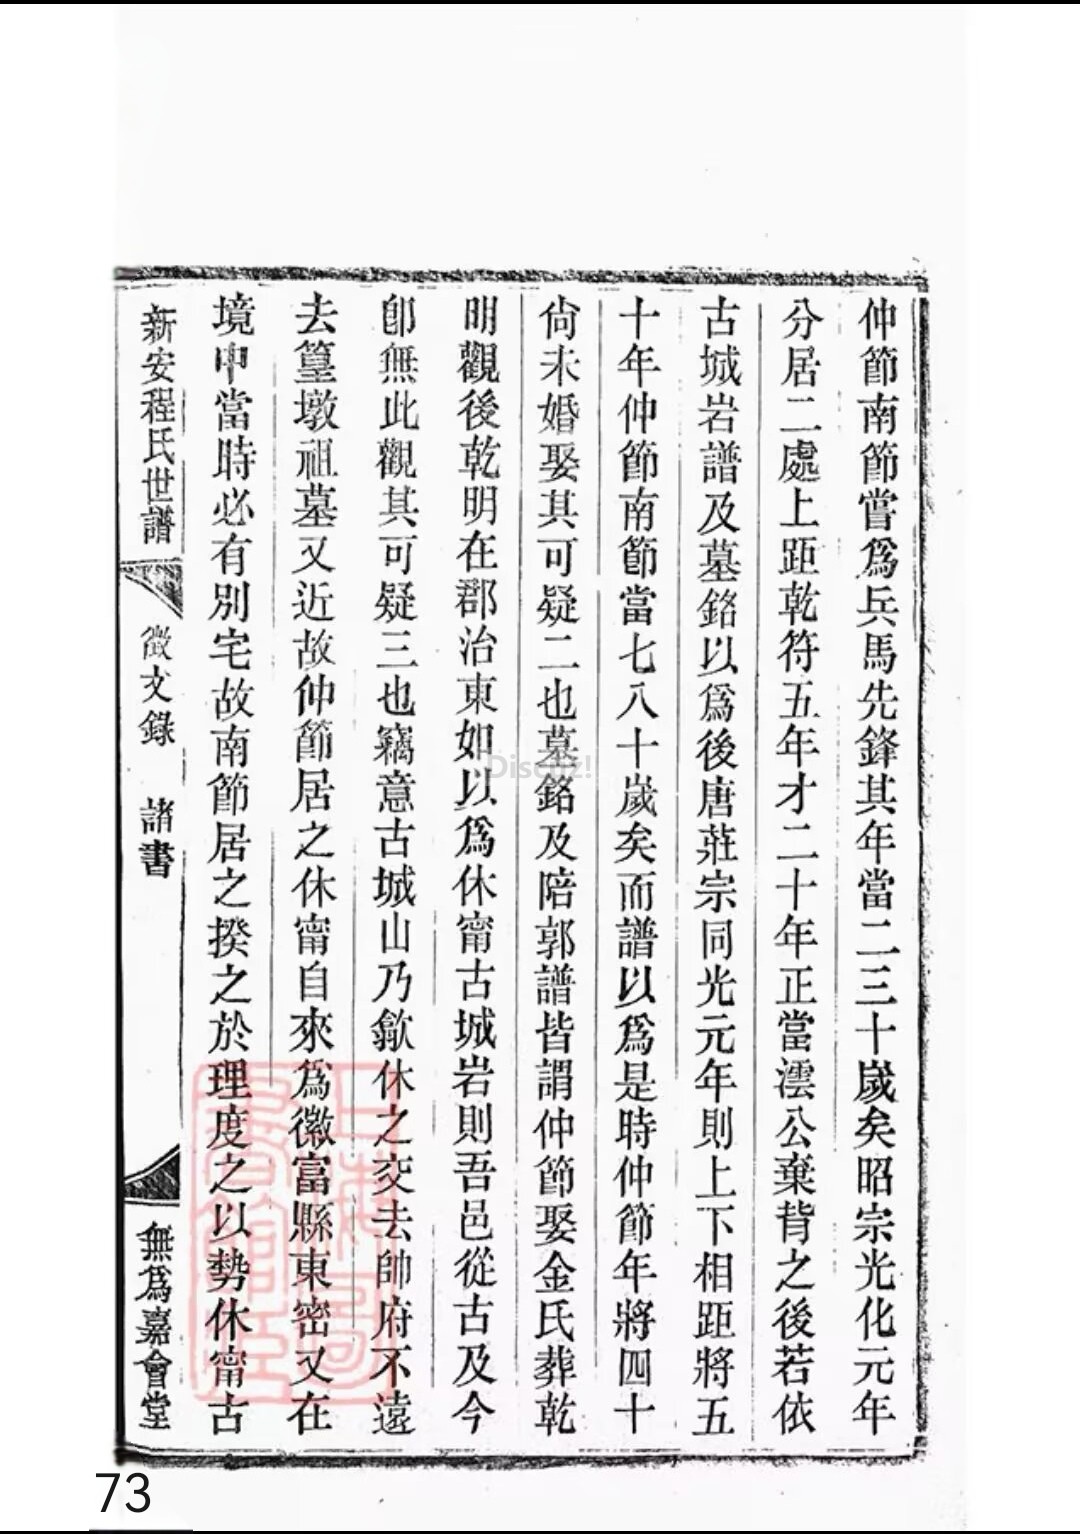 仲節南節嘗爲兵馬先鋒其年當二三十歲矣昭宗光化元年
分居二處上距乾符五年才二十年正當澐公棄背之後若依
古城岩譜及墓銘以爲後唐莊宗同光元年則上下相距將五
十年仲節南節當七八十歲矣而譜以爲是時仲節年將四十
尙未婚娶其可疑二也墓銘及陪郭譜皆謂仲節娶金氏葬乾
明觀後乾明在郡治東如以爲休甯古城岩則吾邑從古及今
卽無此觀其可疑三也竊意古城山乃歙休之交去帥府不遠
去篁墩祖墓又近故仲節居之休甯自來爲徽富縣東密又在
境中當時必有別宅故南節居之揆之於理度之以勢休甯古
新安程氏世譜
徵文錄 諸書
無爲嘉會堂
上海圖
書館藏
Discuz!
73